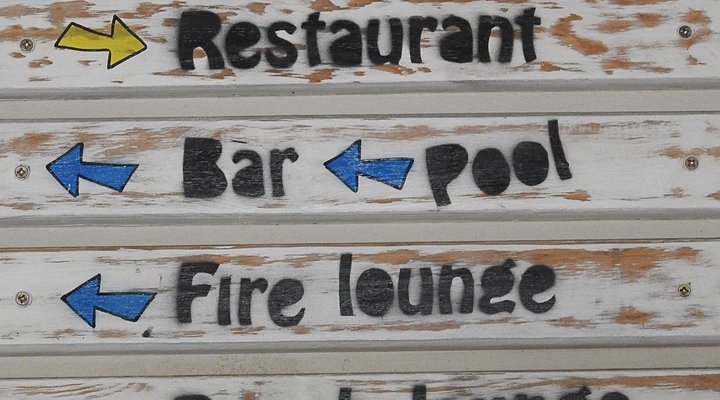 Restaurant
Bar Pool
Fire lounge
lounge